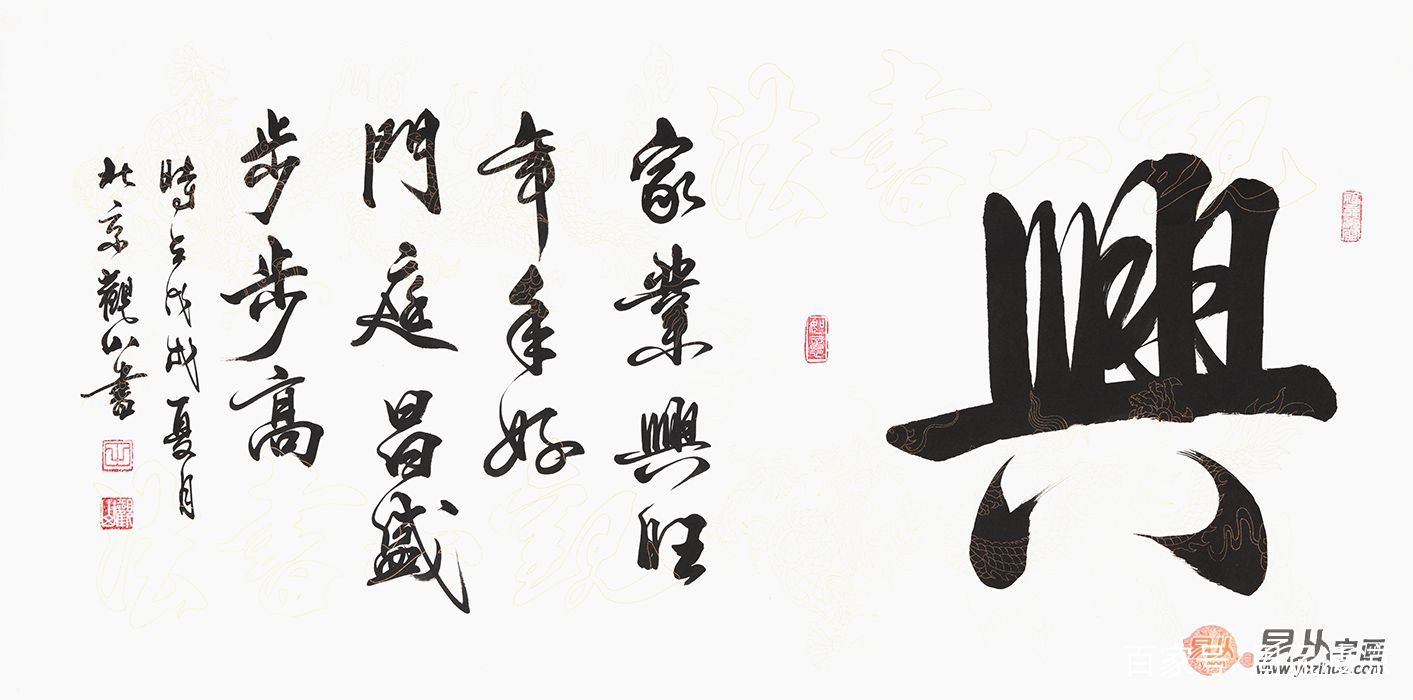 興
家業興旺
年年好
門庭昌盛
步步高
時戊戌夏月
北京觀山書
觀山書法
易从字画
www.yczihua.com
百家号